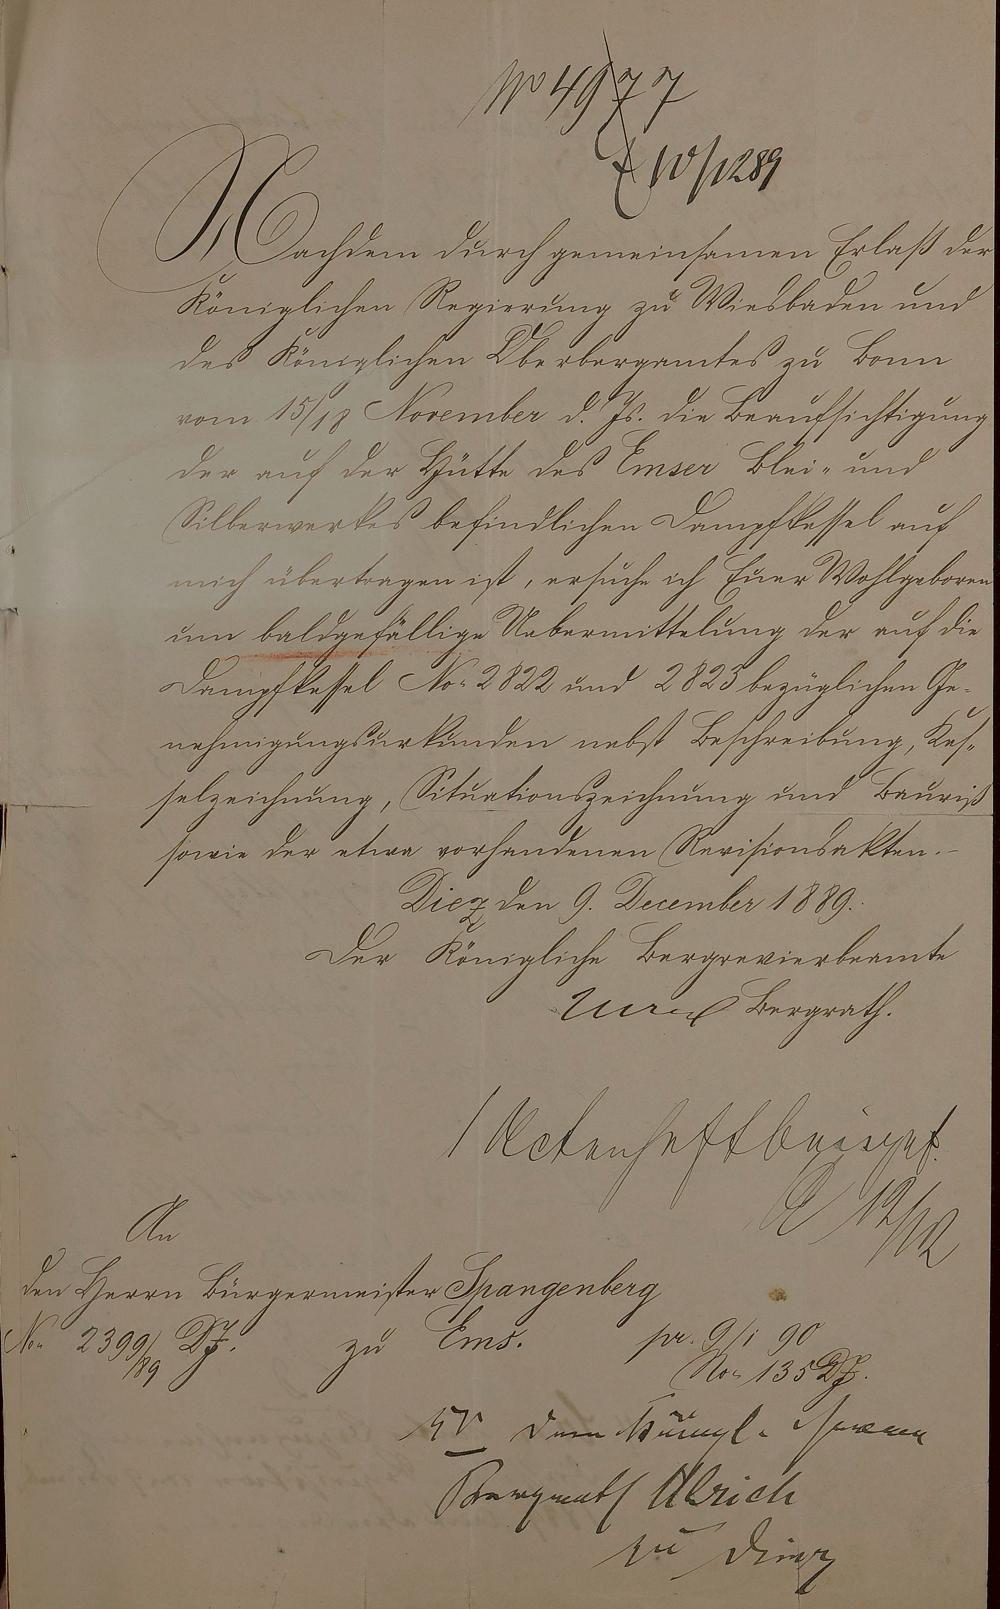 No 4977
10/12 89
Nachdem durch gemeinsamen Erlaß der
Königlichen Regierung zu Wiesbaden und
des Königlichen Oberbergamtes zu Bonn
vom 15/18 November d. Js. die Beaufsichtigung
der auf der Hütte des Emser Blei- und
Silberwerkes befindlichen Dampfkessel auf
mich übertragen ist, ersuche ich Euer Wohlgeboren
um baldgefällige Uebermittelung der auf die
Dampfkessel No. 2822 und 2823 bezüglichen Ge-
nehmigungsurkunden nebst Beschreibung, Kes-
selzeichnung, Situationszeichnung und Bauriß
sowie der etwa vorhandenen Revisionsakten.-
Diez den 9. December 1889.
Der Königliche Bergrevierbeamte
Bergrath.
1 Actenheft beigef.
12/12
An
den Herrn Bürgermeister Spangenberg
No. 2399/89 DJ. zu Ems. pr. 9/1 90
No. 135 DJ.
dem Königl.
Bergrath Ulrich
zu Diez